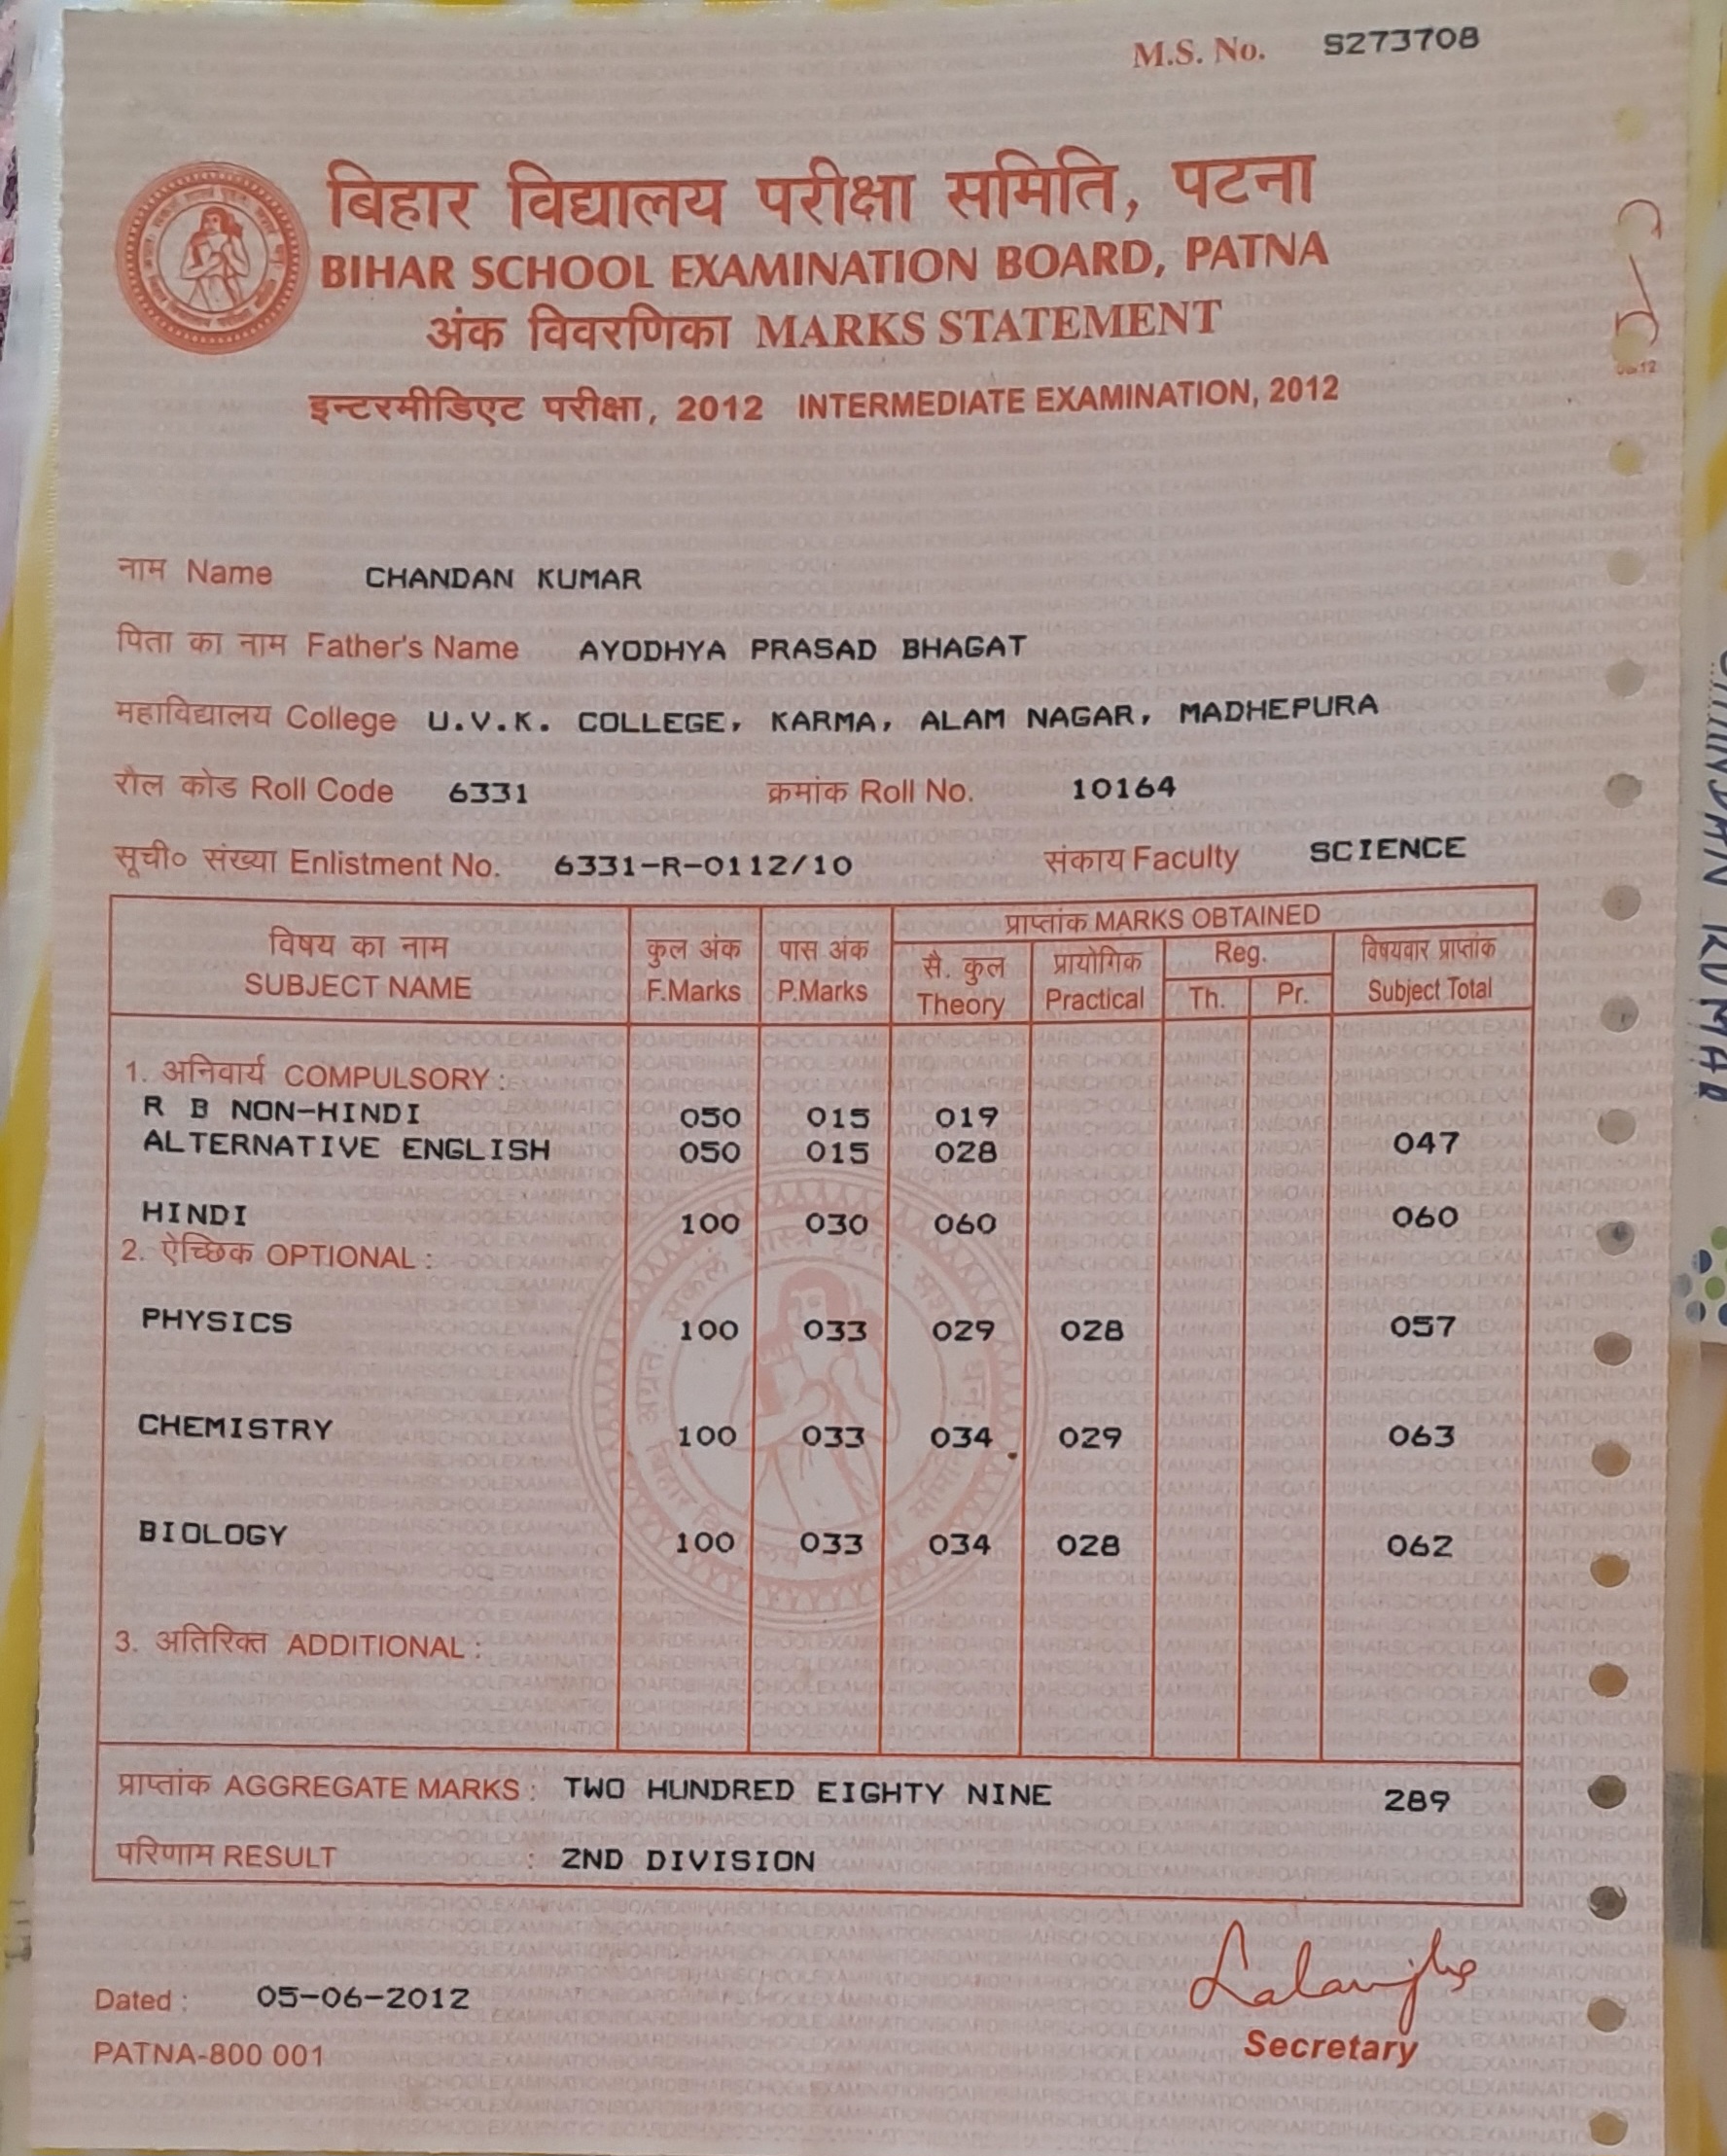 M.S. No. S273708
बिहार विद्यालय परीक्षा समिति, पटना
BIHAR SCHOOL EXAMINATION BOARD, PATNA
अंक विवरणिका MARKS STATEMENT
इन्टरमीडिएट परीक्षा, 2012 INTERMEDIATE EXAMINATION, 2012
नाम Name CHANDAN KUMAR
पिता का नाम Father's Name AYODHYA PRASAD BHAGAT
महाविद्यालय College U.V.K. COLLEGE, KARMA, ALAM NAGAR, MADHEPURA
रौल कोड Roll Code 6331 क्रमांक Roll No. 10164
सूची० संख्या Enlistment No. 6331-R-0112/10 संकाय Faculty SCIENCE
प्राप्तांक MARKS OBTAINED
विषय का नाम कुल अंक पास अंक सै. कुल प्रायोगिक Reg. विषयवार प्राप्तांक
SUBJECT NAME F.Marks P.Marks Theory Practical Th. Pr. Subject Total
1. अनिवार्य COMPULSORY :
R B NON-HINDI 050 015 019
ALTERNATIVE ENGLISH 050 015 028 047
HINDI 100 030 060 060
2. ऐच्छिक OPTIONAL :
PHYSICS 100 033 029 028 057
CHEMISTRY 100 033 034 029 063
BIOLOGY 100 033 034 028 062
3. अतिरिक्त ADDITIONAL :
प्राप्तांक AGGREGATE MARKS : TWO HUNDRED EIGHTY NINE 289
परिणाम RESULT : 2ND DIVISION
Dated : 05-06-2012
PATNA-800 001
Secretary
KUMAR